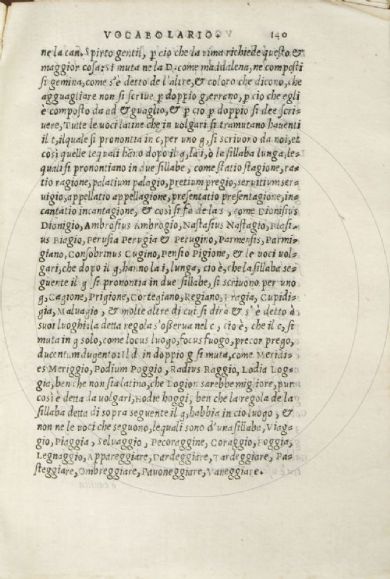 VOCABOLARIO
140
ne la can. Spirto gentil, p cio che la rima richiede questo. &
maggior cosa: si muta ne la D. come maddalena, ne composti
si gemina, come s'è detto de l'altre, & coloro che dicono, che
agguagliare non si scrive p doppio g, errono, p cio che egli
è composto da ad & guaglio, & p cio p doppio si dee scri
uere, Tutte le uoci latine che in uolgari si tramutano hauenti
il t, ilquale si pronontia in c, per uno g, si scriuoro da noi, et
così quelle lequali hāno dopo il g, la i, ò la sillaba lunga, le
quali si prononciano in due sillabe, come statio stagione, ra
tio ragione, palatium palagio, pretium pregio, seruitium ser
uigio, appellatio appellagione, presentatio presentagione, in
cantatio incantagione, & così si fa de la s, come Dionisius
Dionigio, Ambrosius Ambrogio, Nastasius Nastagio, Blasi
us Biagio, Perusia Perugia & Perugino, Parmensis, Parmi
giano, Consobrinus Cugino, Pensio Pigione, & le uoci uol
gari, che dopo il g, hanno la i, lunga, cio è, che la sillaba se
guente il g si prononti a in due sillabe, si scriuono per uno
g, Cagione, Prigione, Cortegiano, Regiano, Fregia, Cupidi
gia, Maluagio, & molte altre di cui si dirà & s'è detto à
suoi luoghi. la detta regola s'osserua nel c, cio è, che il c, si
muta in g solo, come locus luogo, focus fuogo, precor prego,
ducentum dugento: Il d in doppio g si muta, come Meridi
es Meriggio, Podium Poggio, Radius Raggio, Lodia Log
gia, ben che non sia latino, che Logion sarebbe migliore, pur
così è detta da uolgari, Hodie hoggi, ben che la regola de la
sillaba detta di sopra seguente il g, habbia in cio luogo, &
non ne le uoci che seguono, lequali sono d'una sillaba, Viag
gio, Piaggia, Seluaggio, Pecoraggine, Coraggio, Foggia,
Legnaggio, Appareggiare, Dardeggiare, Tardeggiare, Pa
steggiare, Ombreggiare, Pauoneggiare, Vaneggiare.